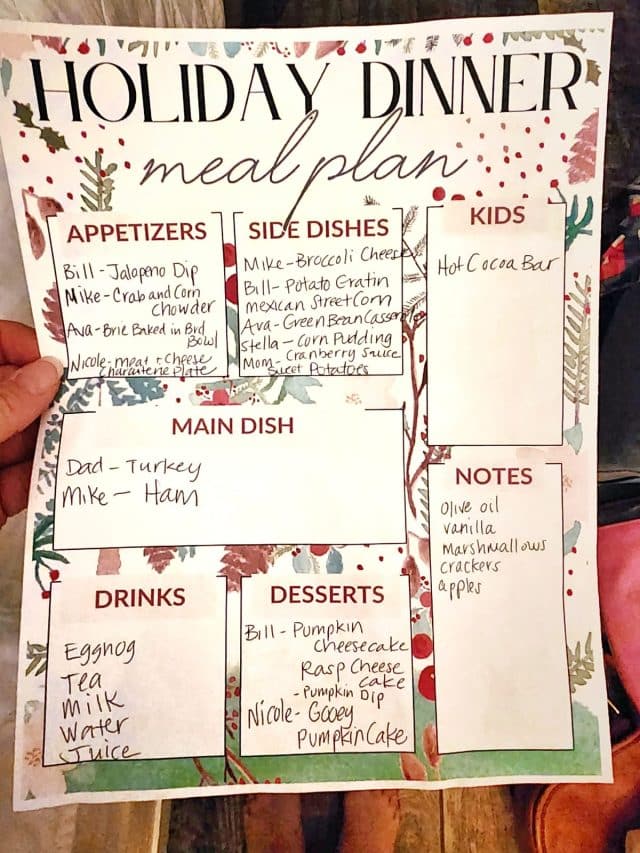 HOLIDAY DINNER
meal plan
APPETIZERS
Bill - Jalapeno Dip
Mike - Crab and Corn
Chowder
Ava - Brie Baked in Brd
Bowl
Nicole - meat + Cheese
Charcuterie Plate
SIDE DISHES
Mike - Broccoli Cheese
Bill - Potato Gratin
Mexican Street Corn
Ava - Green Bean Casserole
Stella - Corn Pudding
Mom - Cranberry Sauce
Sweet Potatoes
KIDS
Hot Cocoa Bar
MAIN DISH
Dad - Turkey
Mike - Ham
NOTES
Olive oil
vanilla
Marshmallows
crackers
apples
DRINKS
Eggnog
Tea
Milk
Water
Juice
DESSERTS
Bill - Pumpkin
Cheesecake
Rasp Cheese
cake
- Pumpkin Dip
Nicole - Gooey
Pumpkin Cake